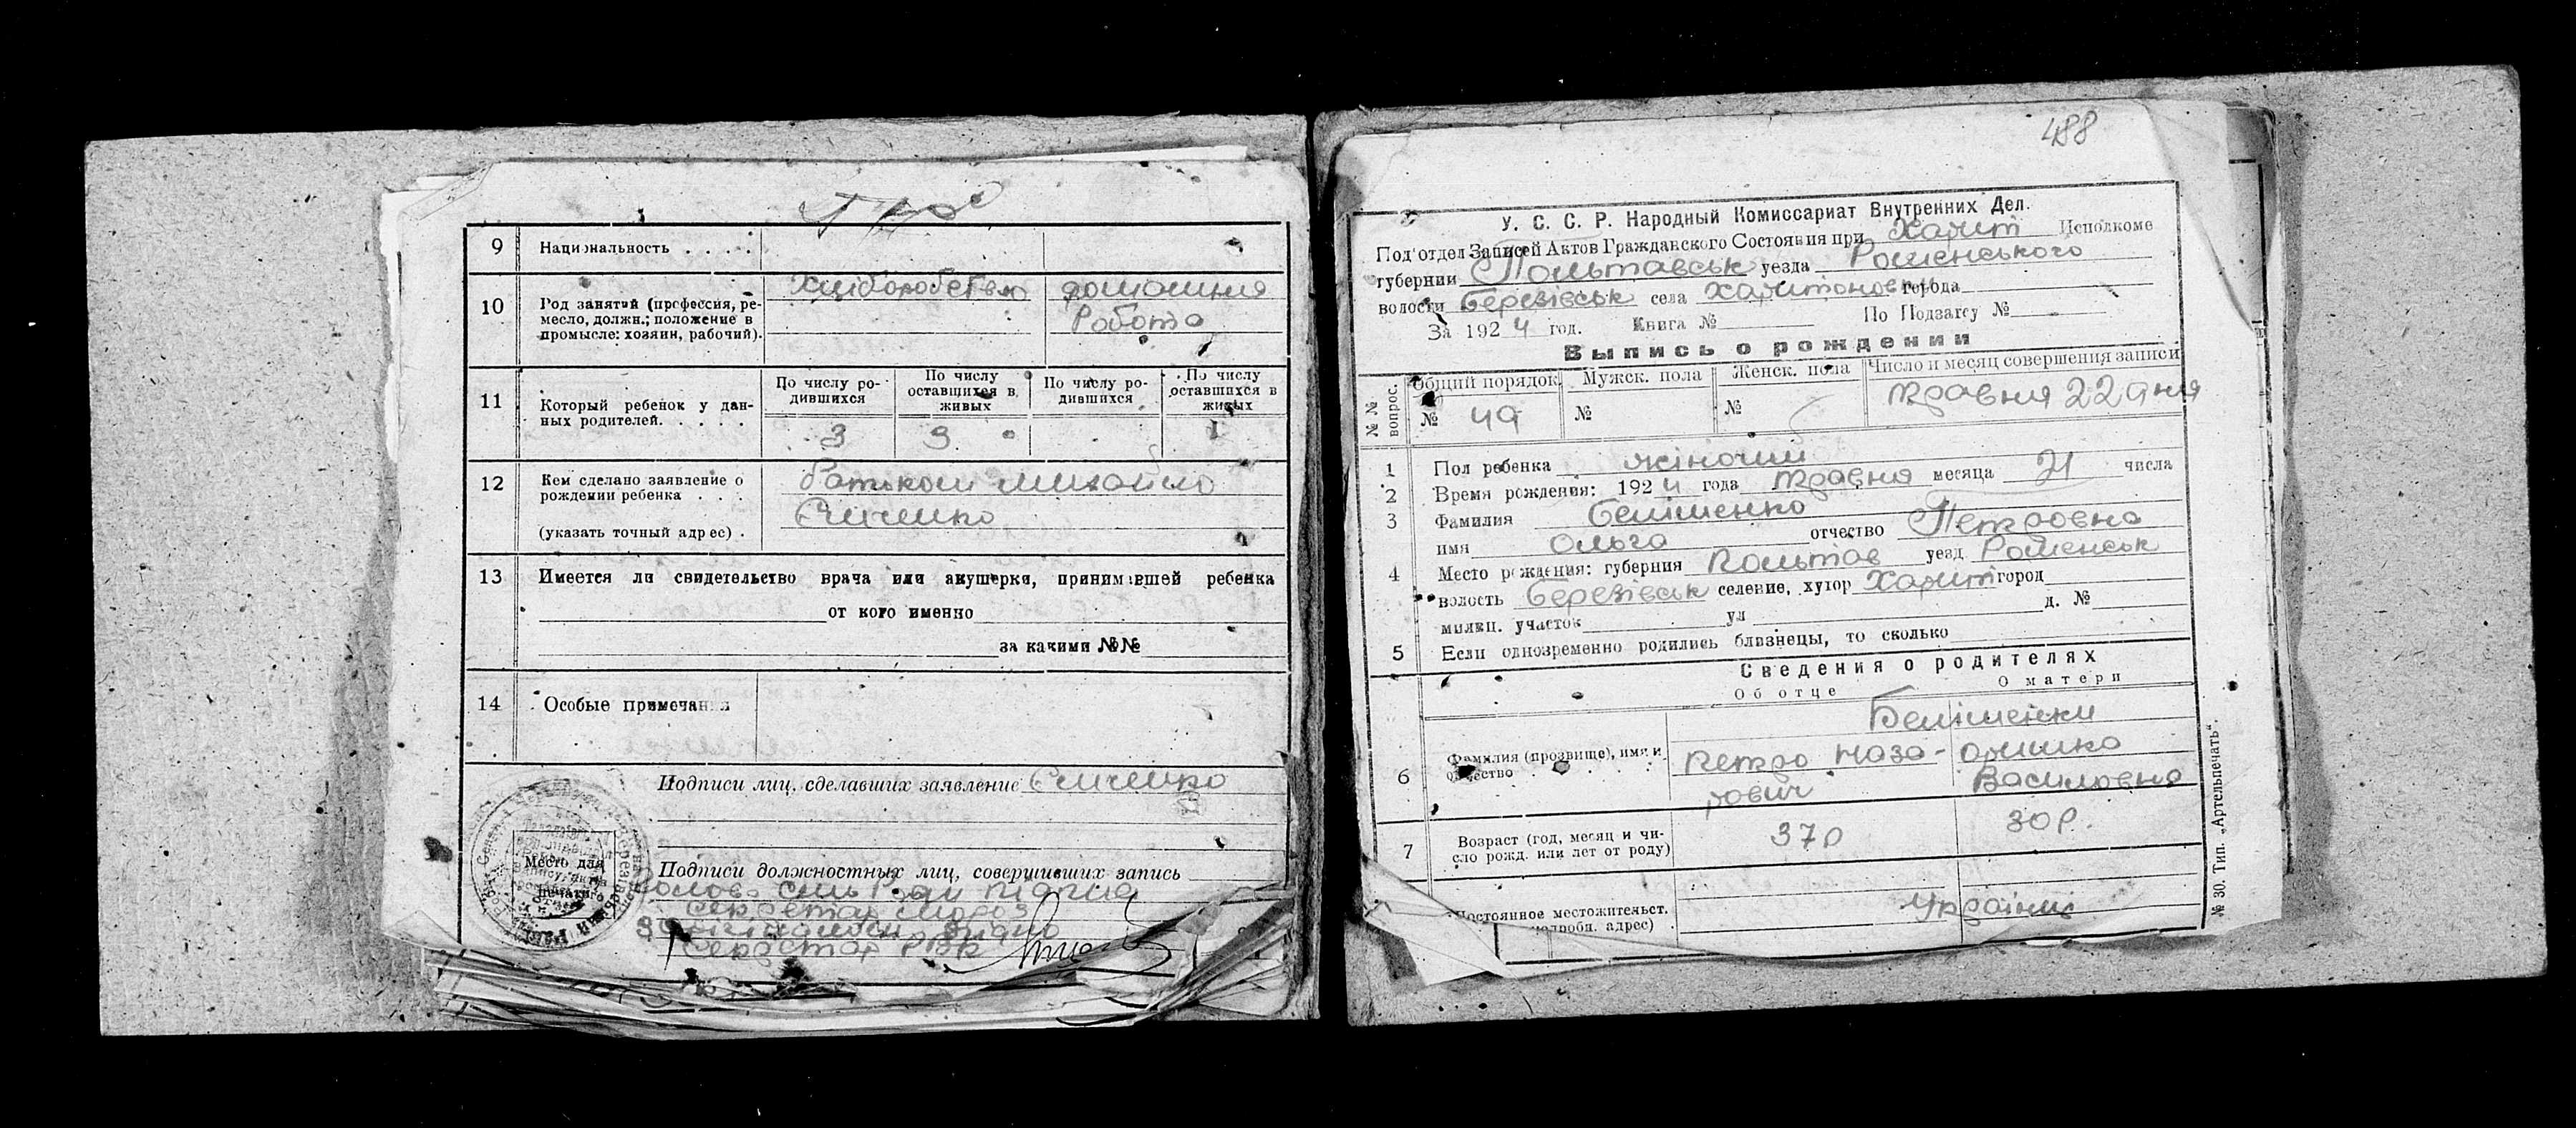 9 Национальность . . . .
10 Род занятий (профессия, ре-
месло, должн.; положение в
промысле: хозяин, рабочий).
Хліборобство
домашня
Робота
11 Который ребенок у дан-
ных родителей. . . . .
По числу ро-
дившихся
По числу
оставшихся в
живых
По числу ро-
дившихся
По числу
оставшихся в
живых
3 3
12 Кем сделано заявление о
рождении ребенка . . .
(указать точный адрес) .
Батьком Михайло
13 Имеется ли свидетельство врача или акушерки, принимавшей ребенка
от кого именно
за какими №№
14 Особые примечания
Подписи лиц, сделавших заявление
Место для
печати
Подписи должностных лиц, совершивших запись
Голова
секретар Мороз
Секретар РВК
488
У. С. С. Р. Народный Комиссариат Внутренних Дел.
Под'отдел Записей Актов Гражданского Состояния при Харит Исполкоме
губернии Полтавськ уезда Роменського
волости Березівськ села Харитоновки города
За 1924 год. Книга № По Подзагсу №
Выпись о рождении
№№ вопрос.
Общий порядок. Мужск. пола Женск. пола Число и месяц совершения записи
№ 49 № № травня 22 дня
1 Пол ребенка жіночий
2 Время рождения: 1924 года травня месяца 21 числа
3 Фамилия Велішенко
имя Ольга отчество Петровна
4 Место рождения: губерния Полтав уезд Роменськ
волость Березівськ селение, хутор Харит город
милиц. участок ул д. №
5 Если одновременно родились близнецы, то сколько
Сведения о родителях
Об отце О матери
6 Фамилия (прозвище), имя и
отчество . . . . .
Велішенки
Петро Наза-
рович
Оришка
Василовна
7 Возраст (год, месяц и чи-
сло рожд. или лет от роду)
37 р
30 р.
Постоянное местожительст.
подробн. адрес) .
Українці
№ 30. Тип. „Артельпечать".